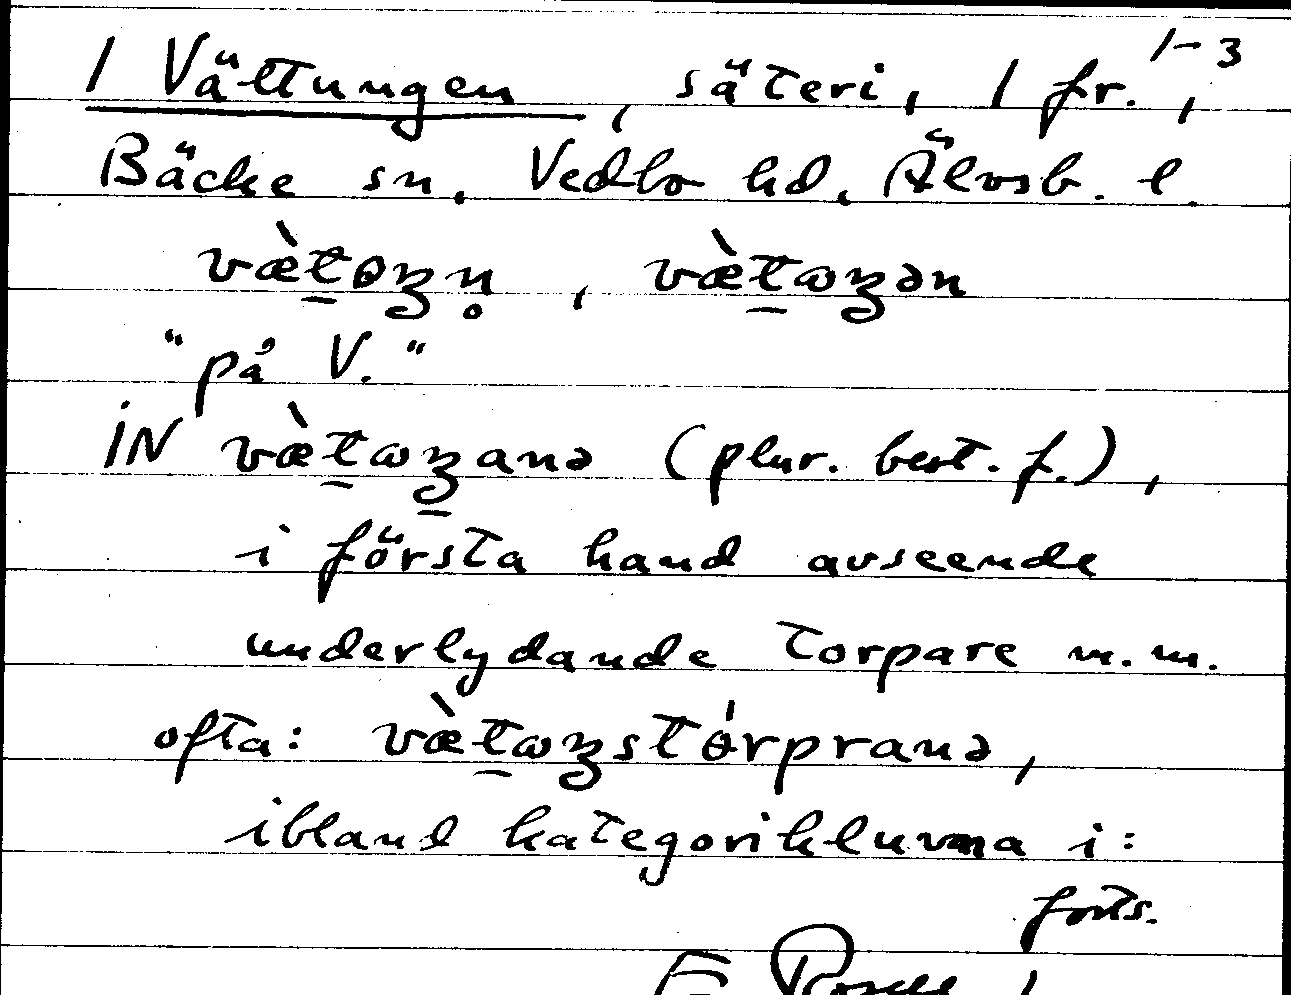 1-3
1 Vättungen, säteri, 1 fr.,
Bäcke sn, Vedbo hd, Älvsb. l.
væ̀t̠ɵʒn̥, væ̀t̠ɷʒən
"på V."
IN væ̀t̠ɷʒ̠anə (plur. best. f.),
i första hand avseende
underlydande torpare m.m.
ofta: væ̀t̠ɷʒstɵ́rpranə,
ibland kategorikluvna i:
forts.